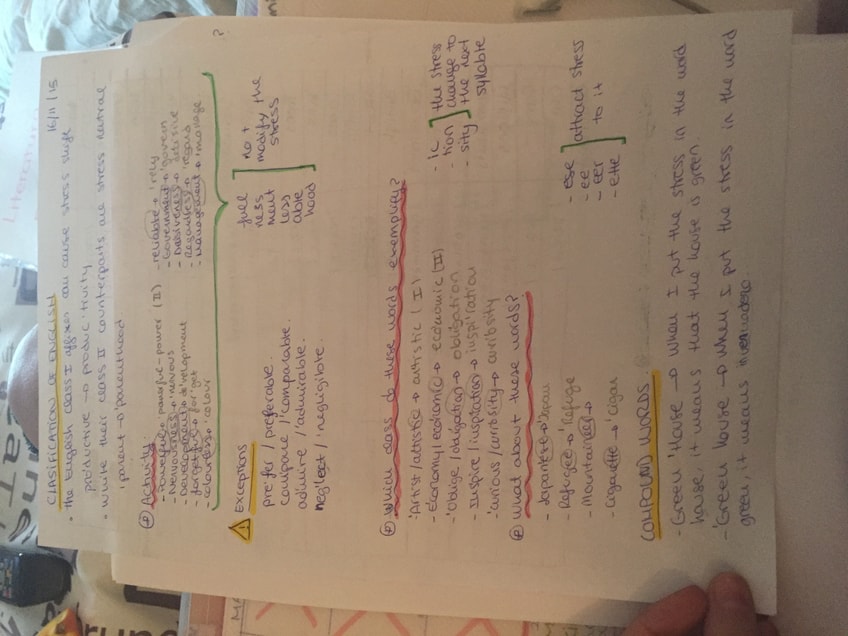 CLASIFICATION OF ENGLISH 16/11/15
• The English class I affixes can cause stress shift
productive → produc'tivity
• While their class II counterparts are stress neutral
'parent → 'parenthood
Activity
- Powerful → powerful - power (II)
- Nervousness → nervous
- Development → de'velopment
- forgetful → for'get
- colourless → 'colour
- reliable → 'rely
- Government → 'govern
- Regardless → regard
- Management → 'manage
?
full
ness
ment
less
able
hood
not
modify the
stress
Exceptions
prefer / preferable.
Compare / 'comparable.
admire / 'admirable.
neglect / 'negligible.
Which class do these words exemplify?
'Artist / artistic → artistic (I)
- Economy / economic → economic (II)
- 'oblige / obligation → obligation
- Inspire / inspiration → inspi'ration
- 'curious / curiosity → curiosity
- ic
- tion
- sity
the stress
change to
the next
syllable
What about these words?
- Japanese → Japan
- Refugee → 'Refuge
- Mountaineer →
- Cigarette → 'Cigar
- ese
- ee
- eer
- ette
attract stress
to it
COMPOUND WORDS
- Green 'House → when I put the stress in the word
house, it means that the house is green.
- 'Green house → when I put the stress in the word
green, it means invernadero.